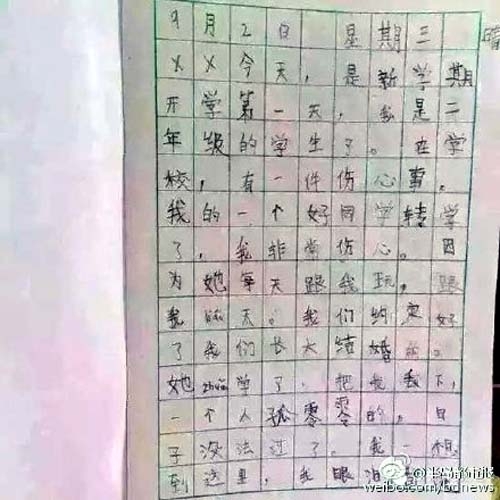 9月2日 星期三 晴
XX今天,是新学期
开学第一天,我是二
年级的学生了。在学
校,有一件伤心事。
我的一个好同学转学
了,我非常伤心。因
为她每天跟我玩,跟
我聊天。我们约定好
了我们长大结婚的。
她zhuǎn学了,把我丢下,
一个人孤零零的,日
子没法过了。我一想
到这里,我眼泪
weibo.com/bdnews